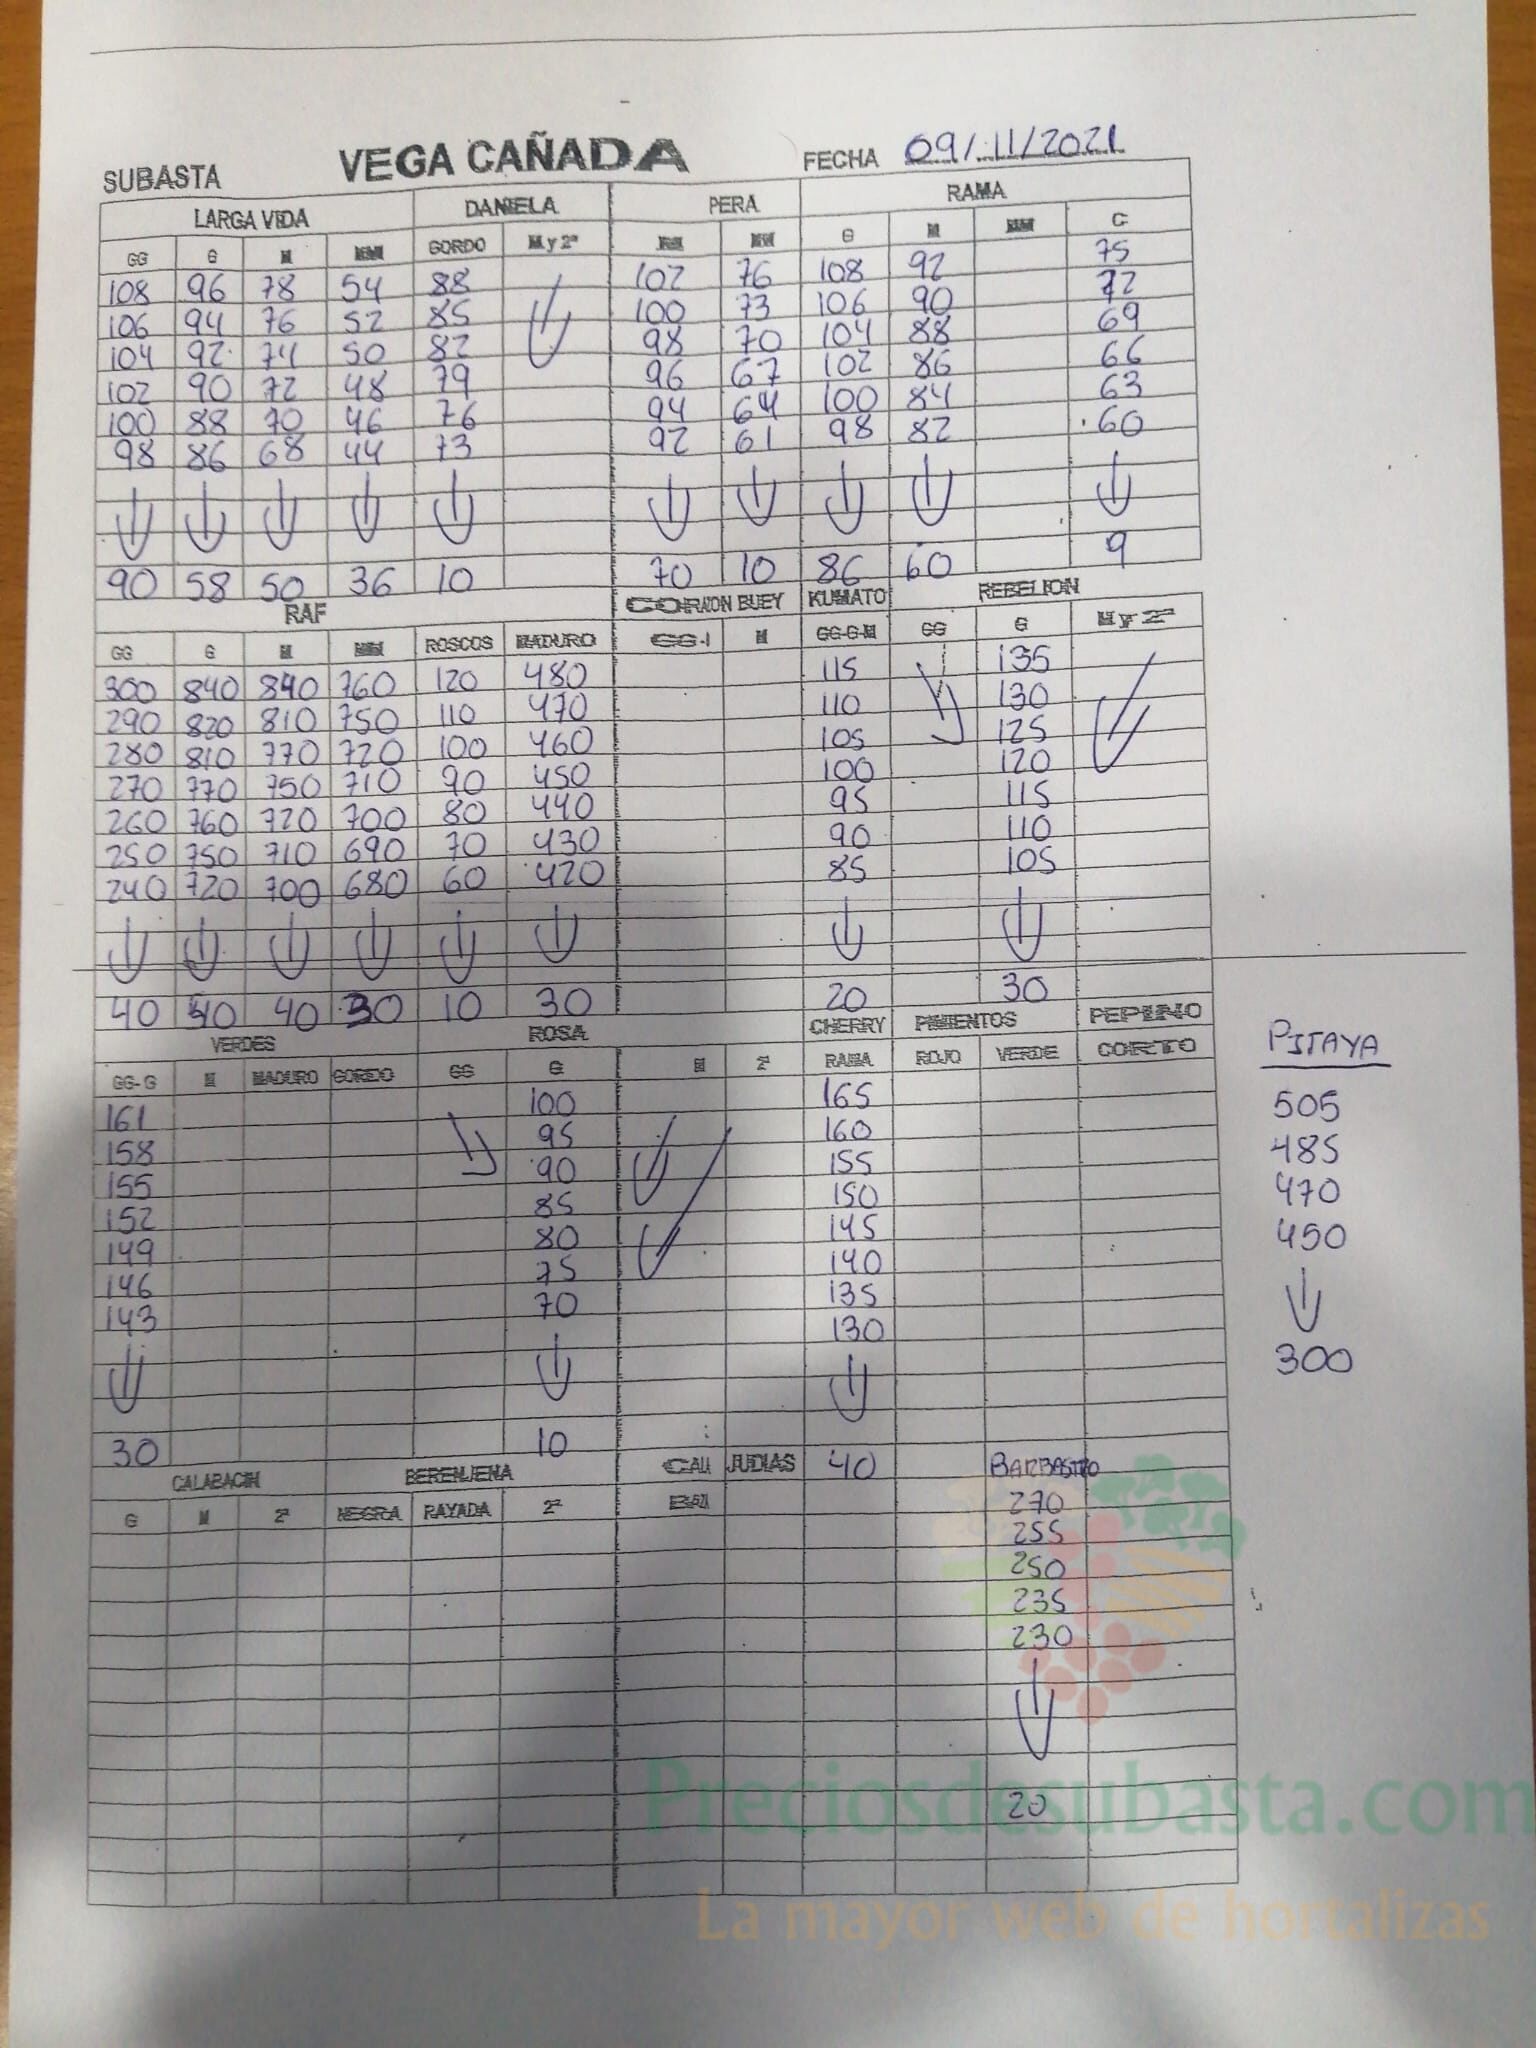 SUBASTA VEGA CAÑADA FECHA 09/11/2021
LARGA VIDA DANIELA PERA RAMA
GG G M MM GORDO M y 2ª MM G M MM C
108 96 78 54 88 102 76 108 92 75
106 94 76 52 85 100 73 106 90 72
104 92 74 50 82 98 70 104 88 69
102 90 72 48 79 96 67 102 86 66
100 88 70 46 76 94 64 100 84 63
98 86 68 44 73 92 61 98 82 60
90 58 50 36 10 70 10 86 60 9
RAF CORAZON BUEY KUMATO REBELION
GG G M MM ROSCOS MADURO GG-1 M GG-G-M GG G M y 2ª
300 840 840 760 120 480 115 135
290 820 810 750 110 470 110 130
280 810 770 720 100 460 105 125
270 770 750 710 90 450 100 120
260 760 720 700 80 440 95 115
250 750 710 690 70 430 90 110
240 720 700 680 60 420 85 105
40 40 40 30 10 30 20 30
VERDES ROSA CHERRY PIMIENTOS PEPINO
GG-G M MADURO GORDO GG G M 2ª RAMA ROJO VERDE CORTO
161 100 165
158 95 160
155 90 155
152 85 150
149 80 145
146 75 140
143 70 135
130
30 10 40
PITAYA
505
485
470
450
300
CALABACIN BERENJENA CALI JUDIAS BARBASTRO
G M 2ª NEGRA RAYADA 2ª
270
255
250
235
230
20
Preciosdesubasta.com
La mayor web de hortalizas